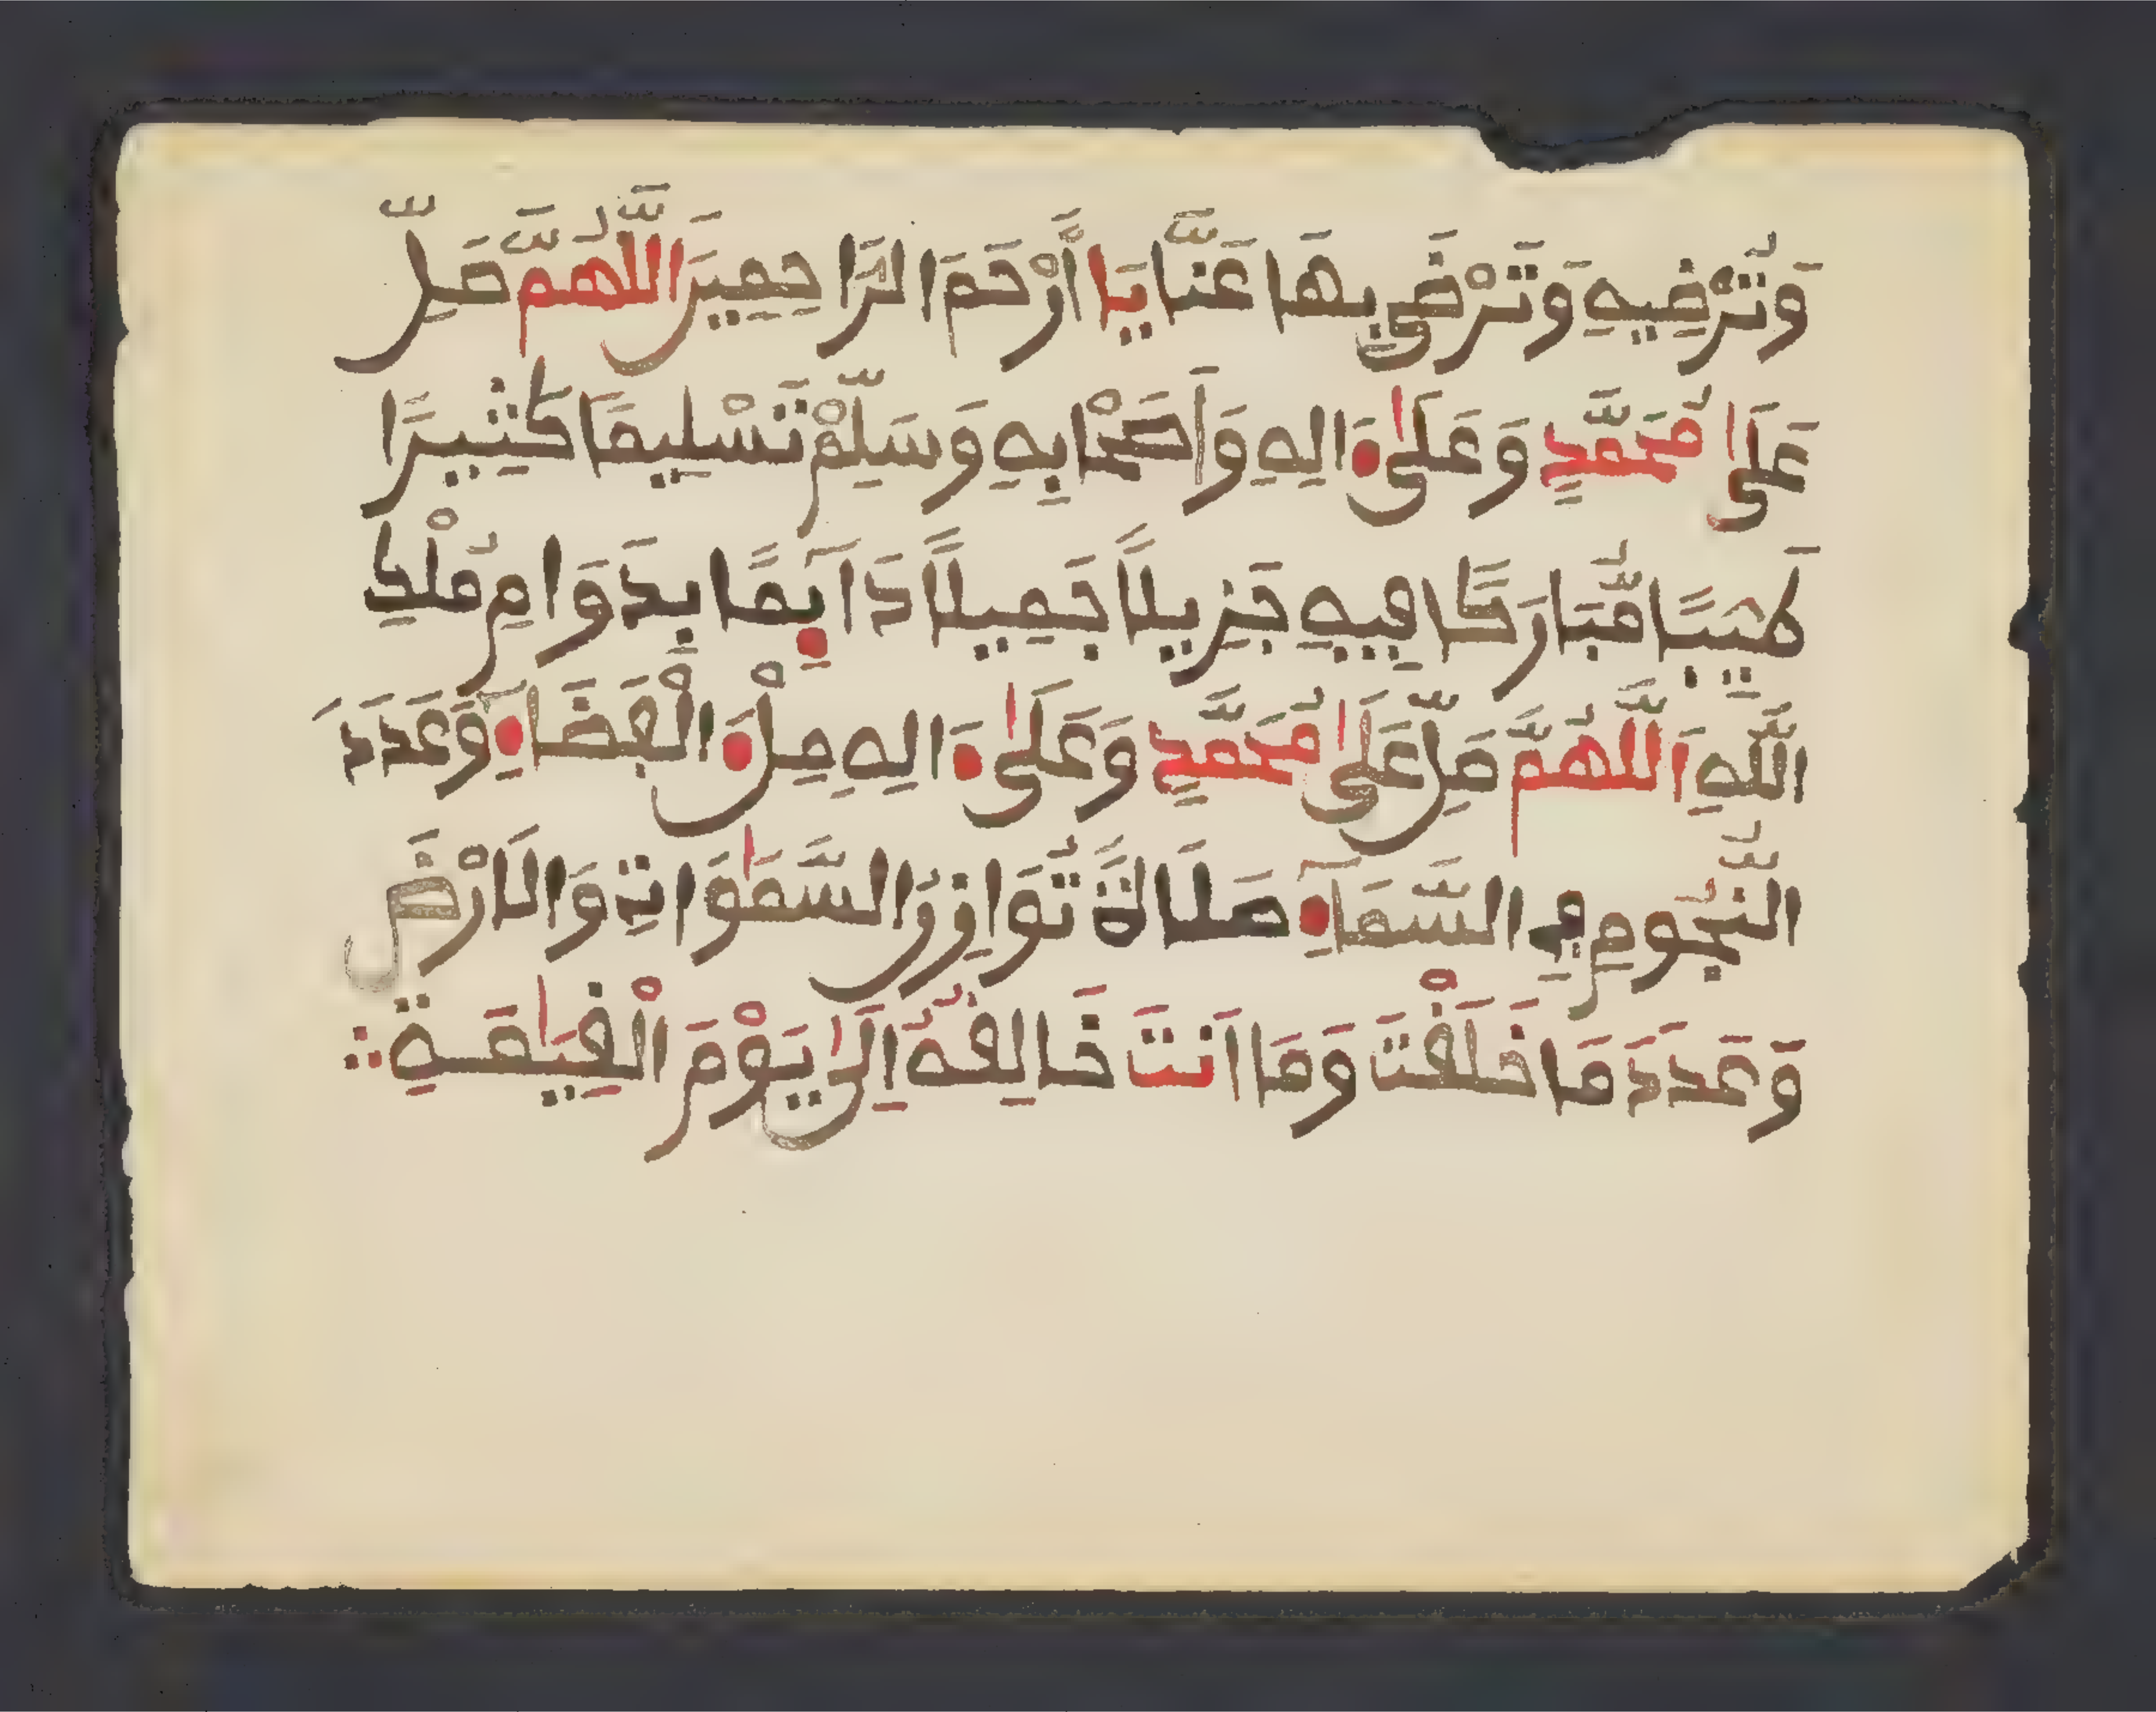 وَتُرْضِيهِ وَتَرْضَى بِهَا عَنَّا يَا أَرْحَمَ الرَّاحِمِينَ اللَّهُمَّ صَلِّ
عَلَى مُحَمَّدٍ وَعَلَى ءَالِهِ وَأَصْحَابِهِ وَسَلِّمْ تَسْلِيمًا كَثِيرًا
طَيِّبًا مُّبَارَكًا فِيهِ جَزِيلًا جَمِيلًا دَآئِمًا بِدَوَامِ مُلْكِ
اللَّهِ اَللَّهُمَّ صَلِّ عَلَى مُحَمَّدٍ وَعَلَى ءَالِهِ مِلْءَ الْفَضَآءِ وَعَدَدَ
النُّجُومِ فِي السَّمَآءِ صَلَاةً تُوَازِنُ السَّمَٰوَاتِ وَالَارْضَ
وَعَدَدَ مَا خَلَقْتَ وَمَا أَنتَ خَالِقُهُ إِلَى يَوْمِ الْقِيَٰمَةِ ∴